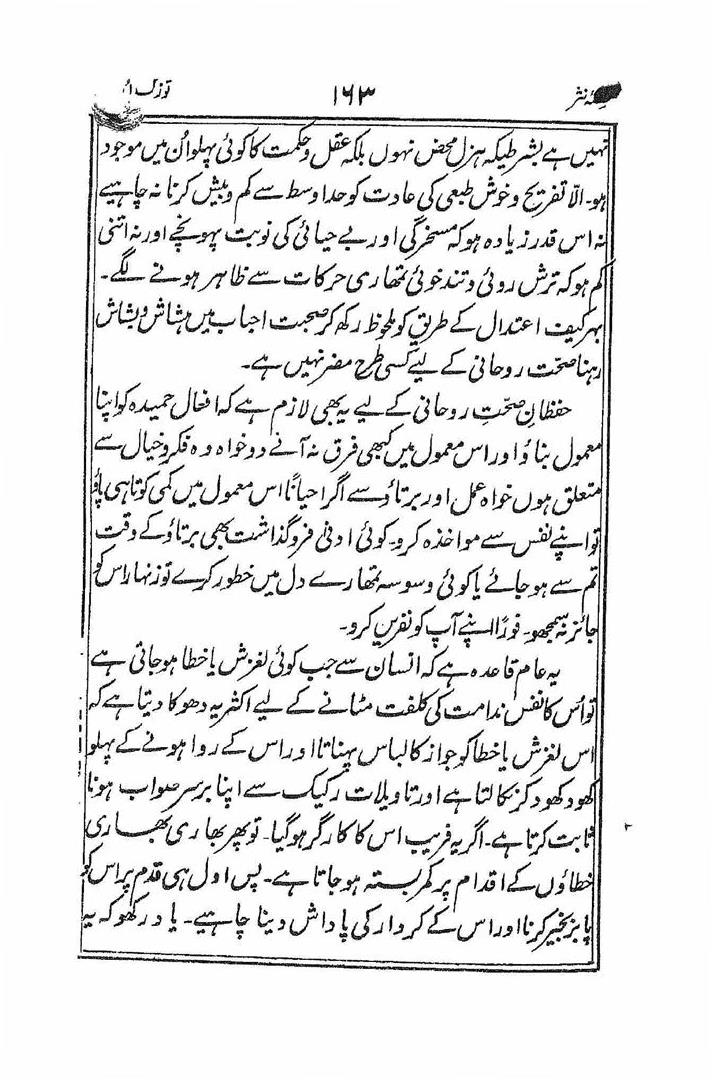 ۱۶۳
نہیں ہے بشرطیکہ ہزل محض نہوں بلکہ عقل و حکمت کا کوئی پہلو اُن میں موجود
ہو۔ الّا تفریح و خوش طبعی کی عادت کو حد اوسط سے کم و بیش کرنا نہ چاہیے
نہ اس قدر زیادہ ہو کہ مسخرگی اور بے حیائی کی نوبت پہونچے اور نہ اتنی
کم ہو کہ ترش روئی و تند خوئی تمھاری حرکات سے ظاہر ہونے لگے۔
بہر کیف اعتدال کے طریق کو ملحوظ رکھ کر صحبت احباب میں ہشاش و بشاش
رہنا صحت روحانی کے لیے کسی طرح مضر نہیں ہے۔
حفظانِ صحّتِ روحانی کے لیے یہ بھی لازم ہے کہ افعال حمیدہ کو اپنا
معمول بناؤ اور اس معمول میں کبھی فرق نہ آنے دو خواہ وہ فکر و خیال سے
متعلق ہوں خواہ عمل اور برتاؤ سے اگر احیاناً اس معمول میں کمی کوتاہی پاؤ
تو اپنے نفس سے مواخذہ کرو۔ کوئی ادنیٰ فروگذاشت بھی برتاؤ کے وقت
تم سے ہو جائے یا کوئی وسوسہ تمھارے دل میں خطور کرے تو زنہار اس کو
جائز نہ سمجھو۔ فوراً اپنے آپ کو نفریں کرو۔
یہ عام قاعدہ ہے کہ انسان سے جب کوئی لغزش یا خطا ہو جاتی ہے
تو اُس کا نفس ندامت کی کلفت مٹانے کے لیے اکثر یہ دھوکا دیتا ہے کہ
اس لغزش یا خطا کو جواز کا لباس پہناتا اور اس کے روا ہونے کے پہلو
کھود کھود کر نکالتا ہے اور تاویلات رکیک سے اپنا برسر صواب ہونا
ثابت کرتا ہے۔ اگر یہ فریب اس کا کارگر ہو گیا۔ تو پھر بھاری بھاری
خطاؤں کے اقدام پر کمر بستہ ہو جاتا ہے۔ پس اول ہی قدم پر اس کو
پابزنجیر کرنا اور اس کے کردار کی پاداش دینا چاہیے۔ یاد رکھو کہ یہ